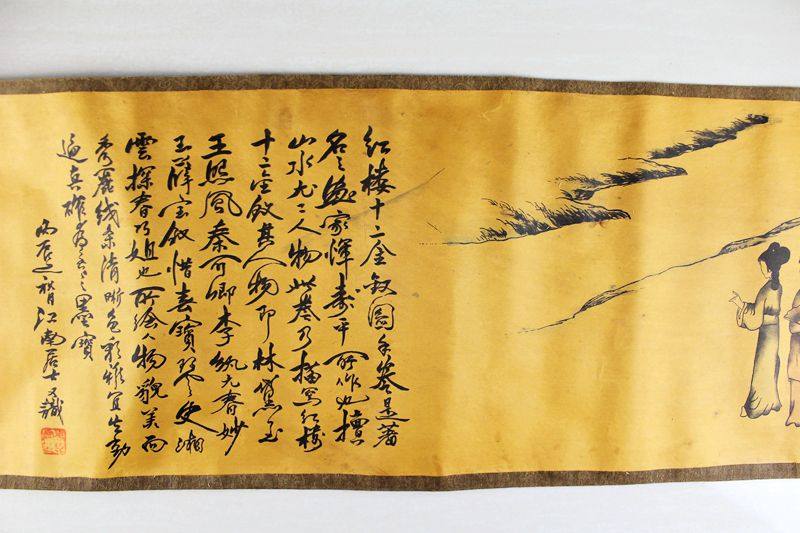 红楼十二金釵圖手卷是著
名之畫家惲壽平所作也擅
山水尤工人物此卷乃描写红楼
十二金釵其人物即林黛玉
王熙鳳秦可卿李纨元春妙
玉薛宝釵惜春寶琴史湘
雲探春巧姐也所绘人物貌美而
秀麗线条清晰色彩雅宜生动
逼真之墨寶
丙辰之月江南居士識